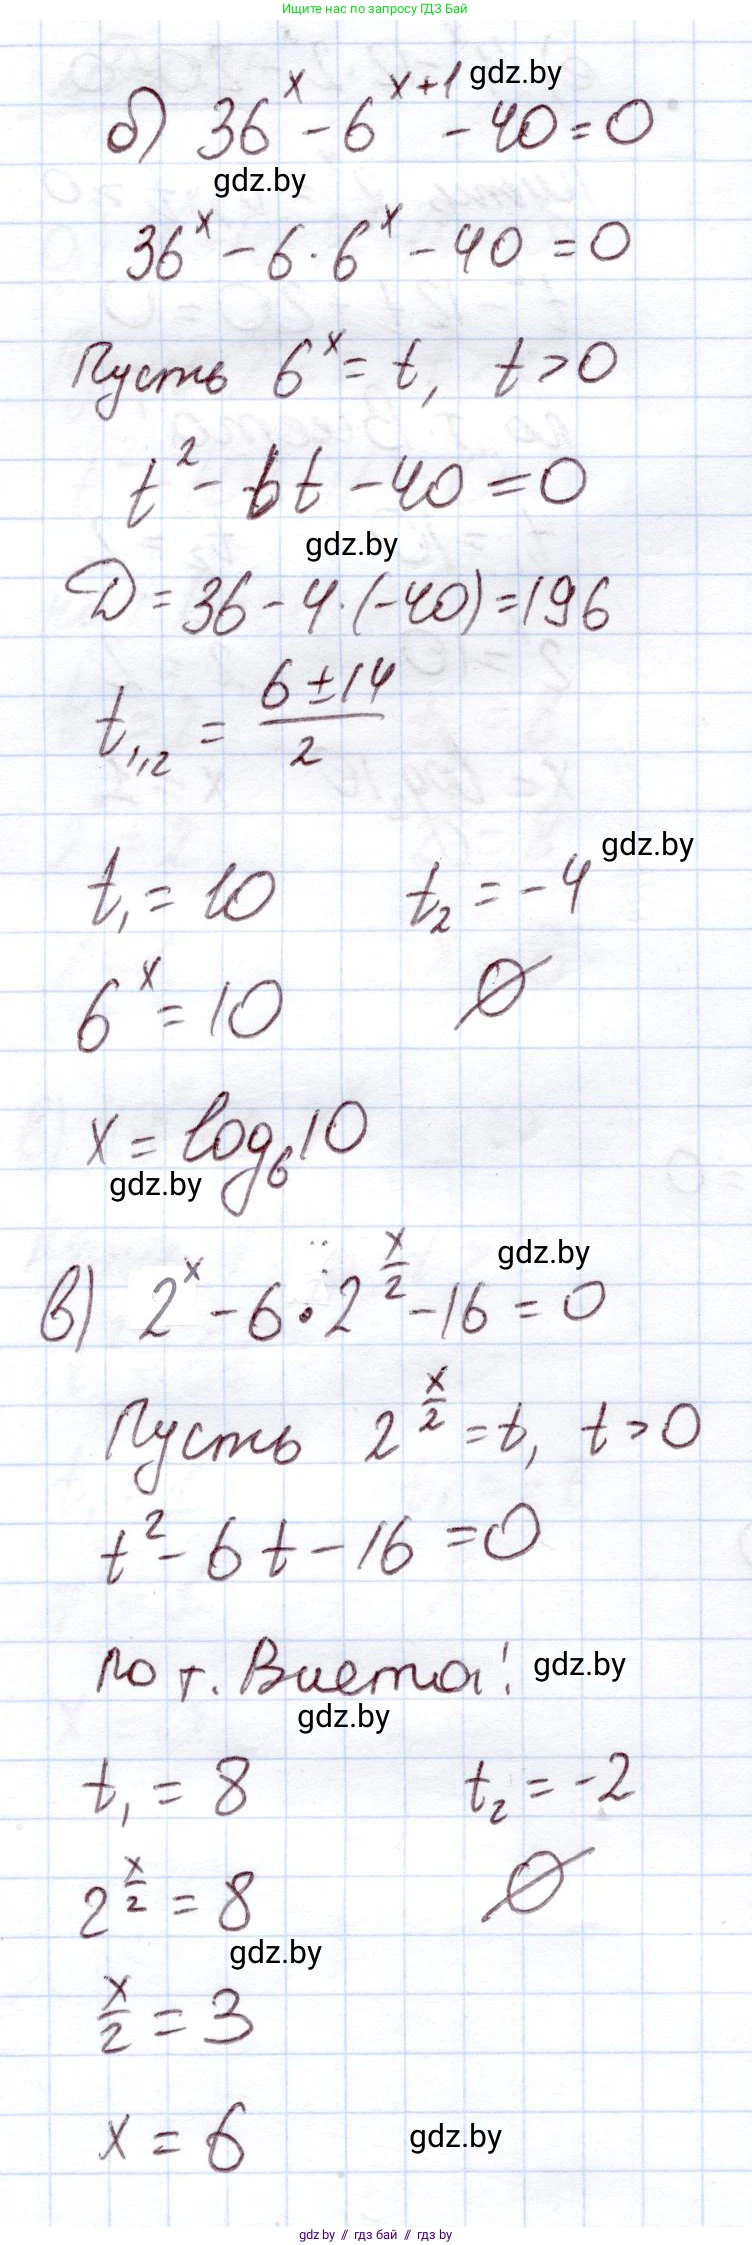 Ищите нас по запросу ГДЗ Бай
б) 36^x - 6^{x+1} - 40 = 0
gdz.by
gdz.by
36^x - 6 · 6^x - 40 = 0
Пусть 6^x = t, t > 0
t^2 - 6t - 40 = 0
gdz.by
D = 36 - 4·(-40) = 196
t_{1,2} = \frac{6 ± 14}{2}
gdz.by
t_1 = 10 t_2 = -4
6^x = 10 ∅
x = log_6 10
gdz.by
gdz.by
в) 2^x - 6 · 2^{\frac{x}{2}} - 16 = 0
Пусть 2^{\frac{x}{2}} = t, t > 0
t^2 - 6t - 16 = 0
по т. Виета: gdz.by
gdz.by
t_1 = 8 t_2 = -2
2^{\frac{x}{2}} = 8 ∅
gdz.by
\frac{x}{2} = 3
x = 6 gdz.by
gdz by // гдз бай // гдз by